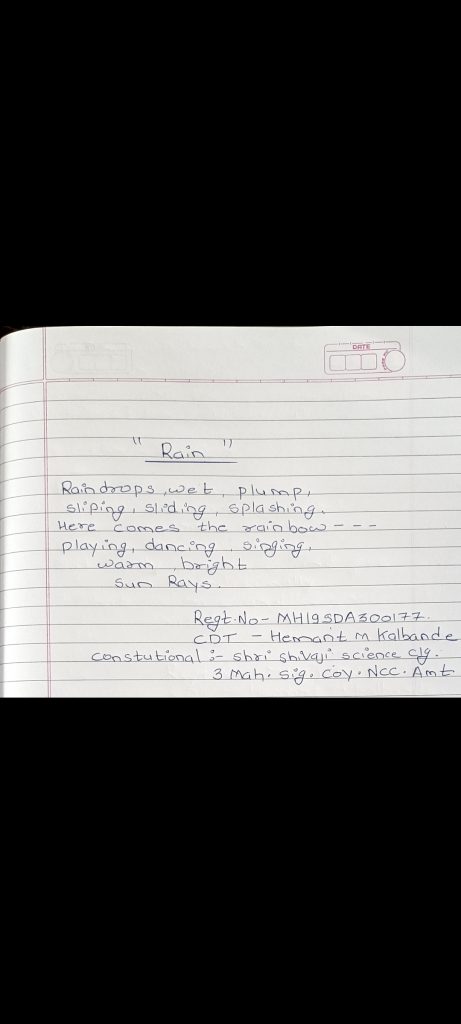 DATE
" Rain "
Raindrops, wet, plump,
sliping, sliding, splashing.
Here comes the rainbow - - -
playing, dancing, singing,
warm, bright
Sun Rays.
Regt. No - MH19SDA300177.
CDT - Hemant M Kalbande
Constutional :- shri shivaji science clg.
3 Mah. sig. coy. NCC. Amt